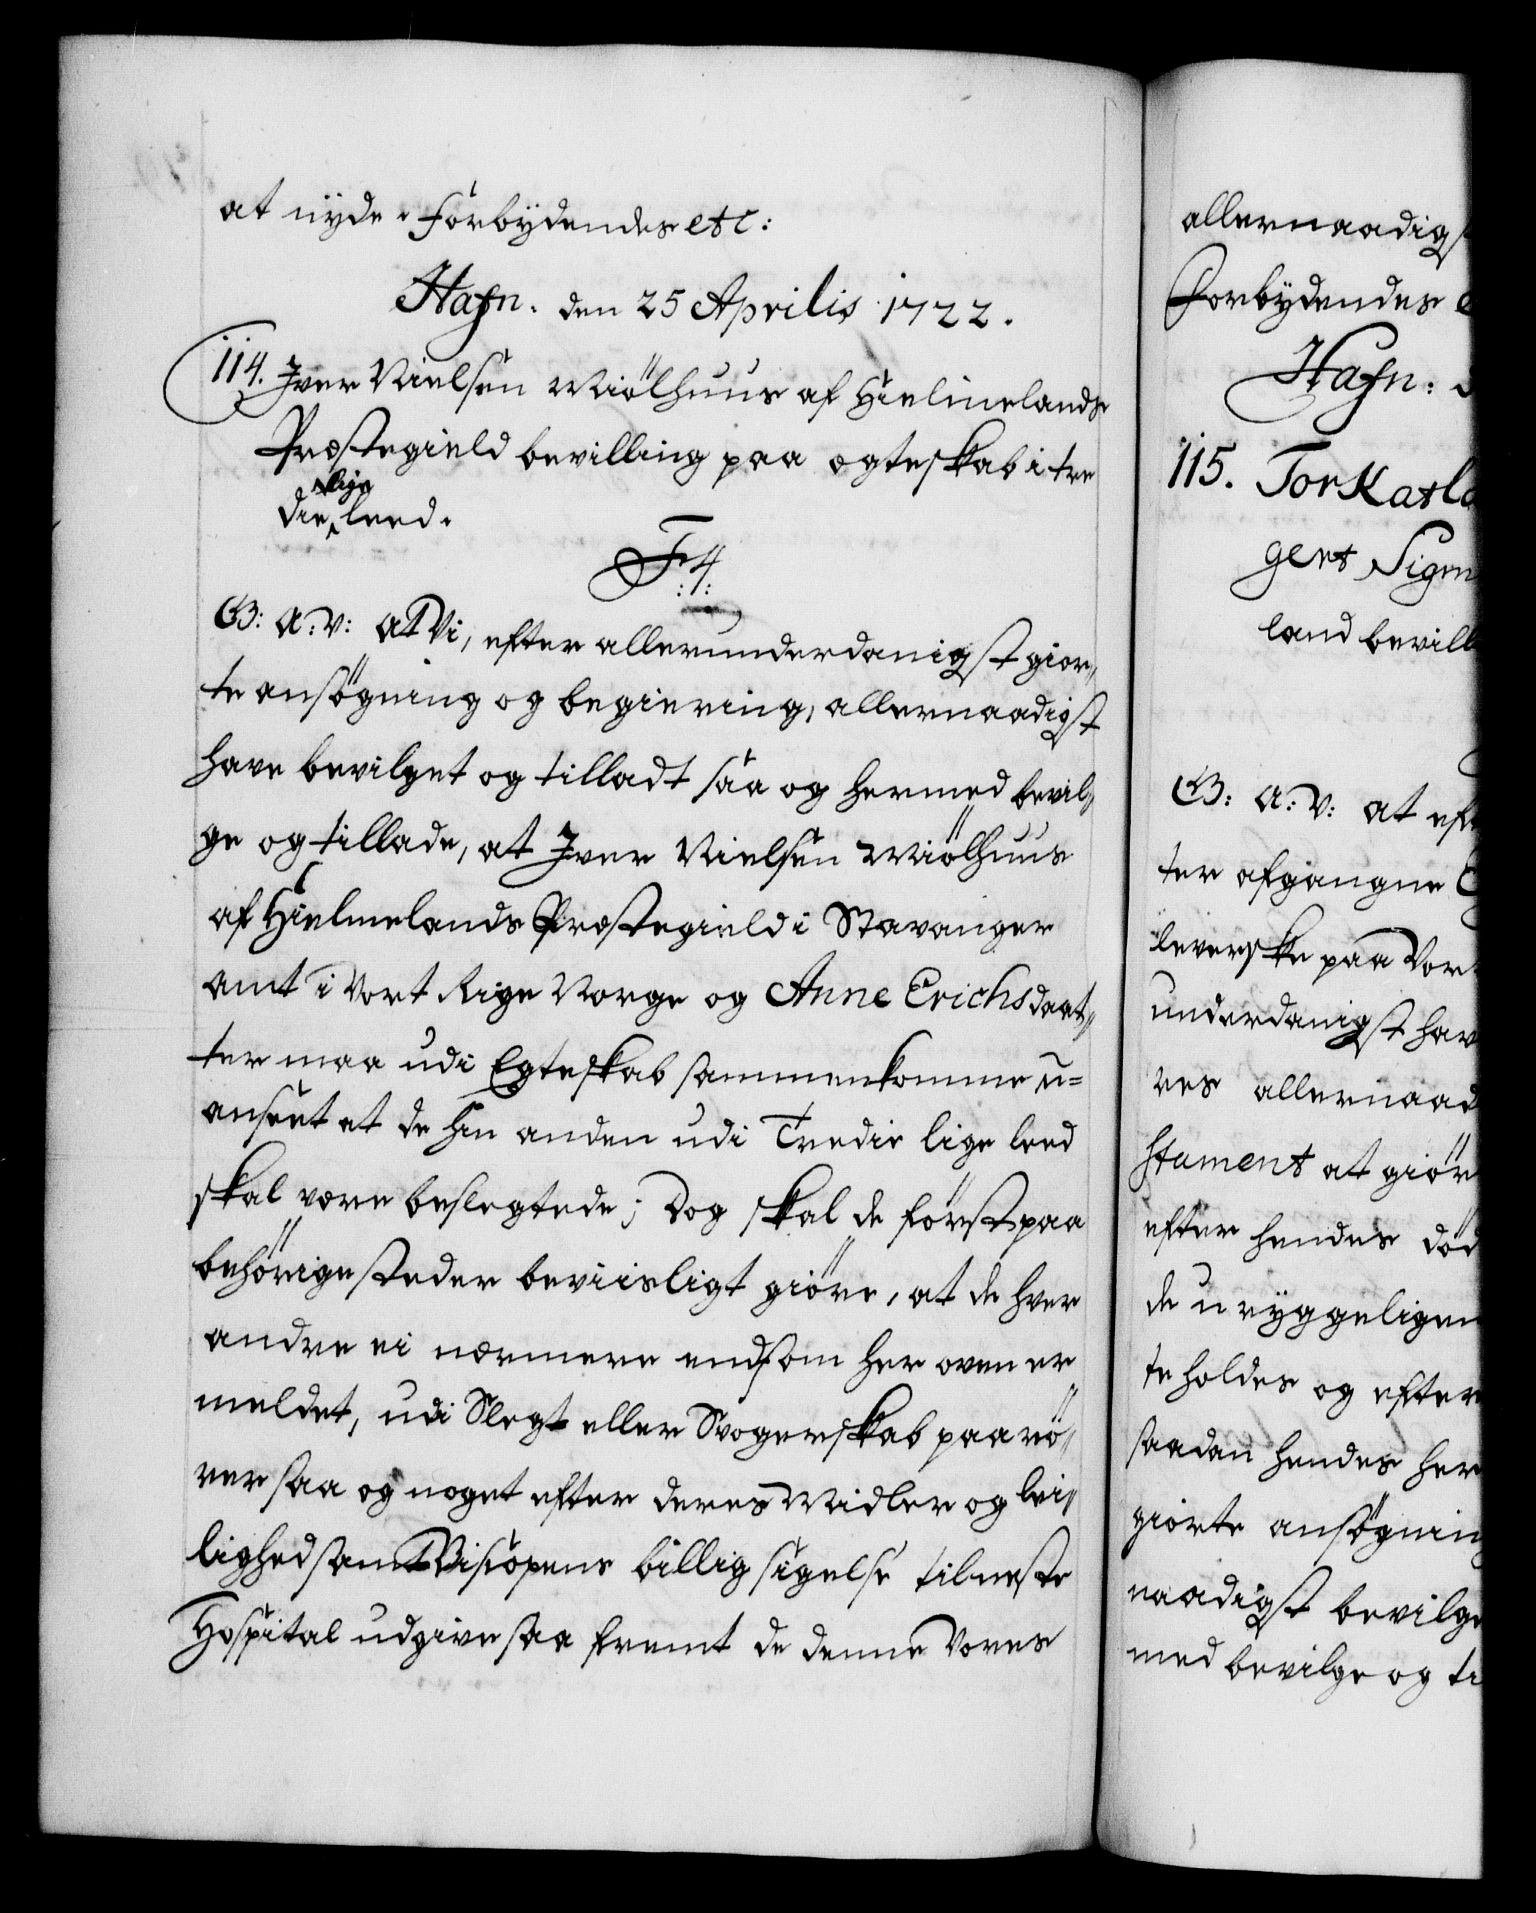 at nÿde. Forbÿdendes etc:
Hafn. den 25 Aprilis 1722.
114. Jver Nielsen Miölhuus af Hielmelands
Præstegield bevilling paa ægteskab i tre
die lige leed.
F4
G: A: V: at Vi, efter allerunderdanigst gior,,
te ansögning og begiering, allernaadigst
have bevilget og tilladt saa og hermed bevil,,
ge og tillade, at Jver Nielsen Miölhuus
af Hielmelands Præstegield i Stavanger
amt i Vort Rige Norge og Anne Erichsdaat,,
ter maa udi Egteskab sammenkomme u=
anseet at de hin anden udi Tredie lige leed
skal være beslegtede; Dog skal de först paa
behörige steder beviisligt giöre, at de hver
andre ei nærmere end som her oven er
meldet, udi Slegt eller Svogerskab paarö,,
rer saa og noget efter deres Midler og lei,,
lighed samt Biscopens billig sigelse til neste
Hospital udgive saa fremt de denne Vores
allernaadigst
Forbÿdendes e
Hafn:
115. Torkatla
gert Sigm
land bevill
G: A: V: at eft
ter afgangne
leverske paa Vor
underdanigst hav
res allernaad
stament at giör
efter hendes död
de u rÿggeligen
te holdes og efter
saadan hendes her
giorte ansögning
naadigst bevilge
med bevilge og ti